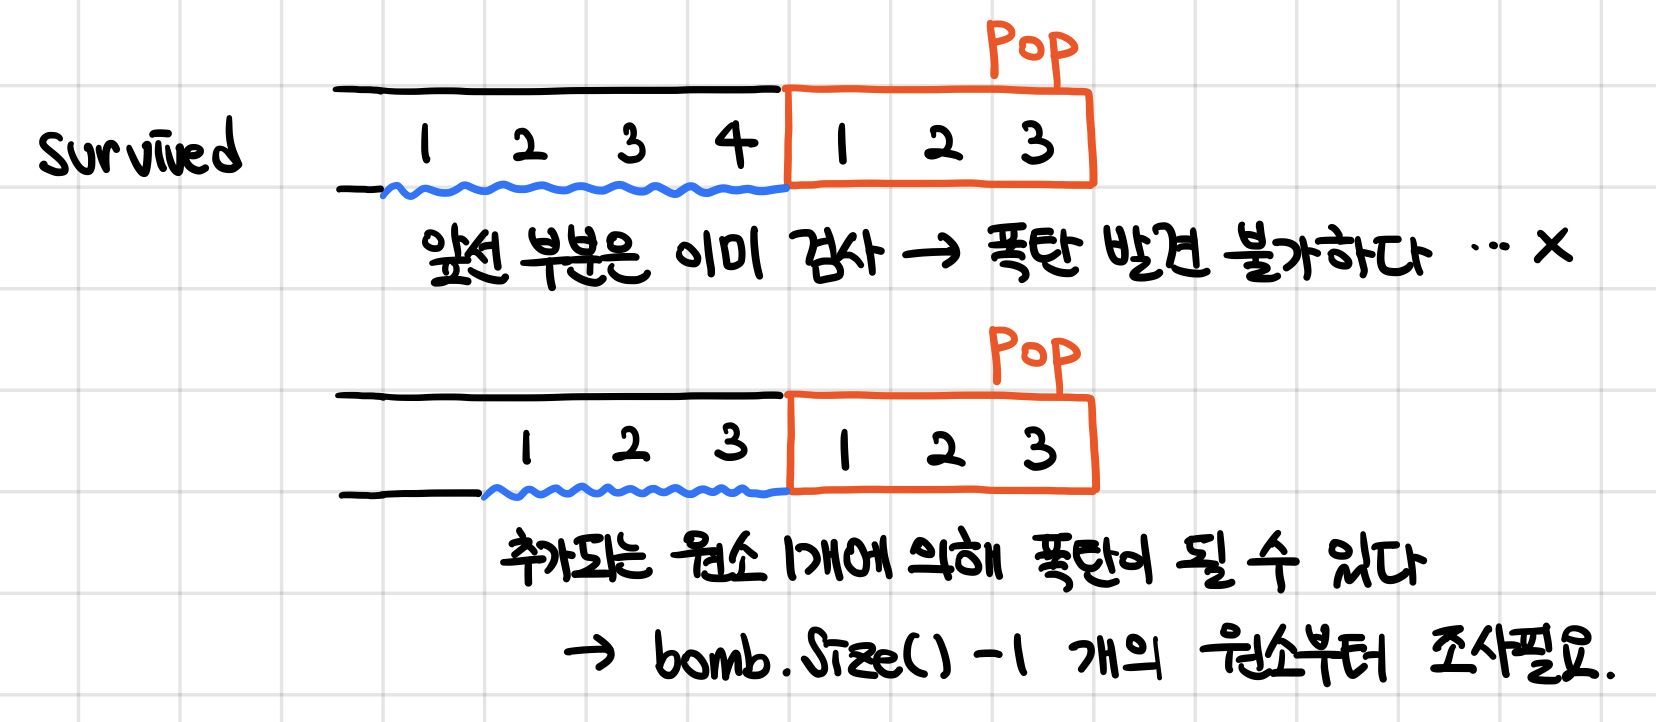 Pop
survived 1 2 3 4 1 2 3
앞선 부분은 이미 검사 → 폭탄 발견 불가하다 … X
Pop
1 2 3 1 2 3
추가되는 원소 1개에 의해 폭탄이 될 수 있다
→ bomb.size() - 1 개의 원소부터 조사필요.